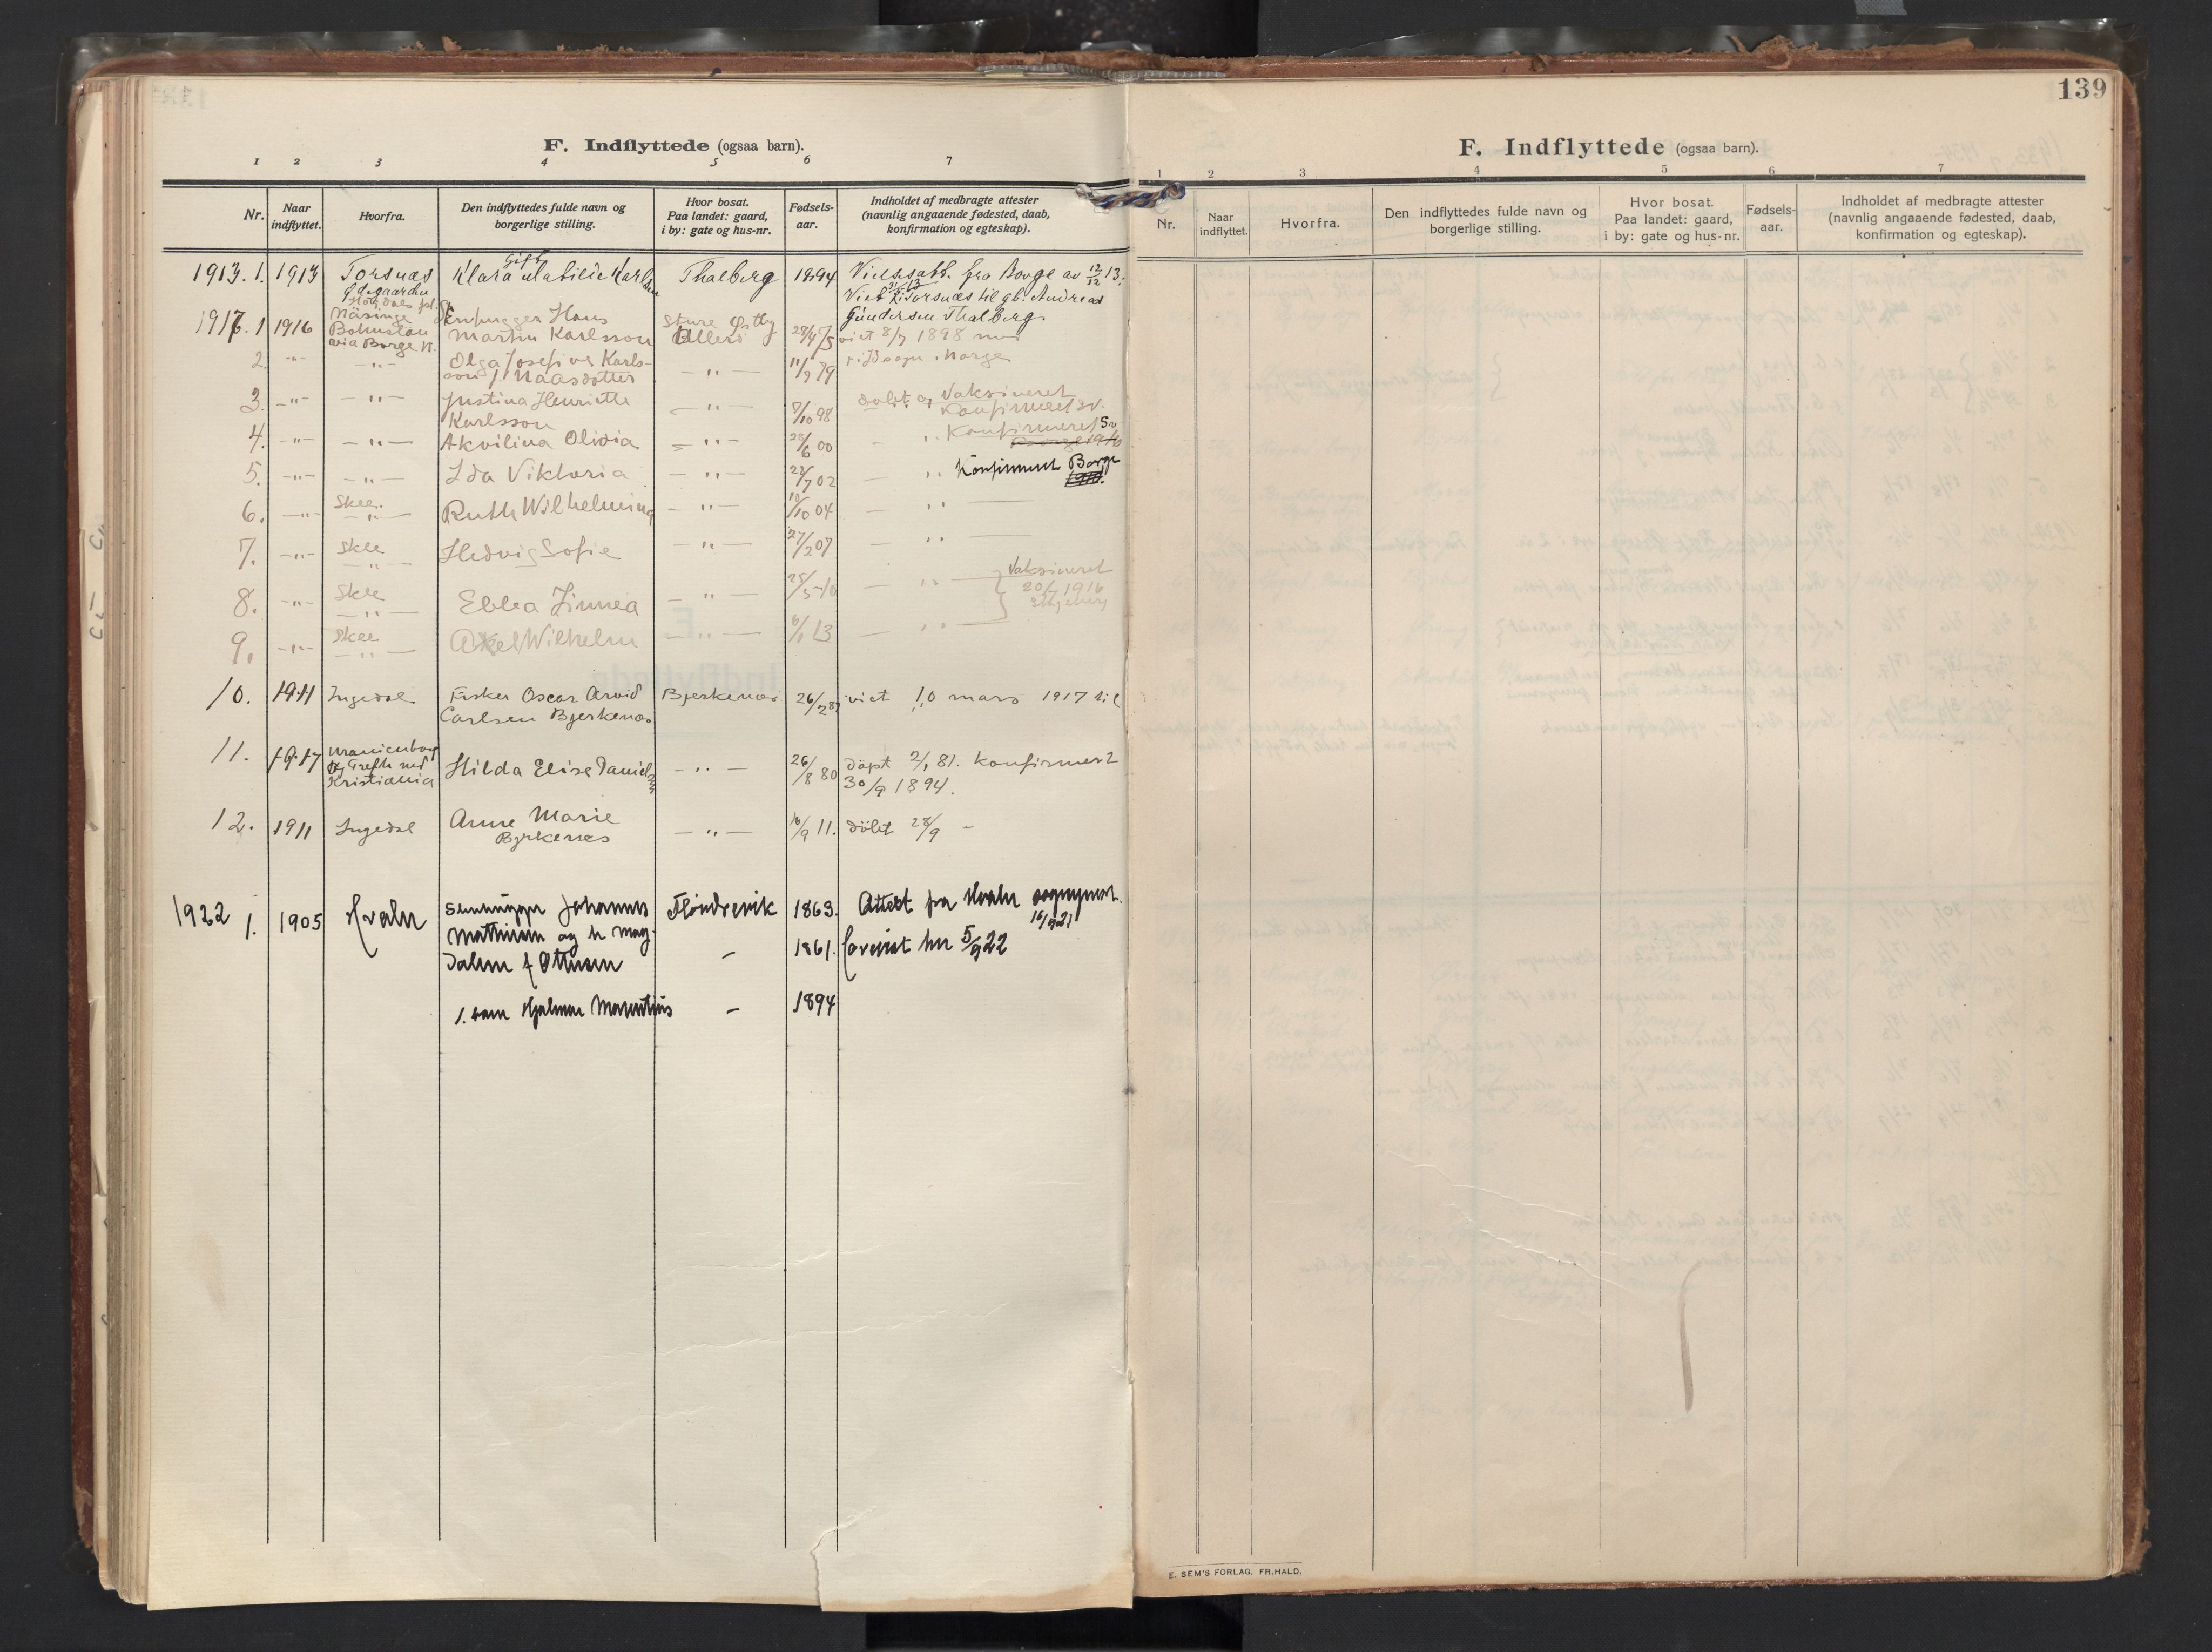 F. Indflyttede (ogsaa barn).
1 2 3 4 5 6 7
Nr. Naar indflyttet. Hvorfra. Den indflyttedes fulde navn og borgerlige stilling. Hvor bosat. Paa landet: gaard, i by: gate og hus-nr. Fødsels-aar. Indholdet af medbragte attester (navnlig angaaende fødested, daab, konfirmation og egteskap).
gift
1913. 1. 1913 Torsnæs Klara Matilde Karlsen Thalberg 1894 Vielsesatt. fra Borge av 12/12 13.
Viet i Torsnæs til gb. Andreas
Gundersen Thalberg.
1917. 1 1916 Näsinge Bohuslän via Borge Stenhugger Hans Martin Karlsson Øllerö 28/4 75 viet 8/7 1898
2. -"- -"- Olga Josefine Karlsson f. Klaasdotter -"- 11/9 79 Norge
3. -"- -"- Justina Henriette Karlsson -"- 7/10 98 döbt og Vaksineret Konfirmeret
4. -"- -"- Akvilina Olivia -"- 28/6 00 - " Konfirmeret
5. -"- -"- Ida Viktoria -"- 22/7 02 - " Konfirmeret Borge
6. -"- Skee -"- Ruth Wilhelmina -"- 10/10 04 - " -
7. -"- Skee -"- Hedvig Sofie -"- 27/2 07 - " -
8. -"- Skee -"- Ebba Linnea -"- 25/5 10 - " - Vaksineret
20/7 1916
9. -"- Skee -"- Axel Wilhelm -"- 6/1 13 - " -
10. 1911 Ingedal Fisker Oscar Arvid Bjerkenæs 26/2 87 viet 10 mars 1917 til
Carlsen Bjerkenæs
11. 1917 Uranienborg Kristiania Hilda Elise Danielsen -"- 26/8 80 döpt 2/1 81. konfirmert
30/9 1894.
12. 1911 Ingedal Anne Marie -"- 16/9 11. döbt 28/9 -
Bjerkenes
1922 1. 1905 Hvaler Stenhugger Johannes Flöndrevik 1863. Attest fra Hvaler sogneprest.
Mathisen og h. Mag- 16/9 21
dalene f. Ottesen - 1861. forevist her 5/9 22
1. barn Hjalmar Mauritius - 1894
139
F. Indflyttede (ogsaa barn).
1 2 3 4 5 6 7
Nr. Naar indflyttet. Hvorfra. Den indflyttedes fulde navn og borgerlige stilling. Hvor bosat. Paa landet: gaard, i by: gate og hus-nr. Fødsels-aar. Indholdet af medbragte attester (navnlig angaaende fødested, daab, konfirmation og egteskap).
E. SEM'S FORLAG, FR.HALD.